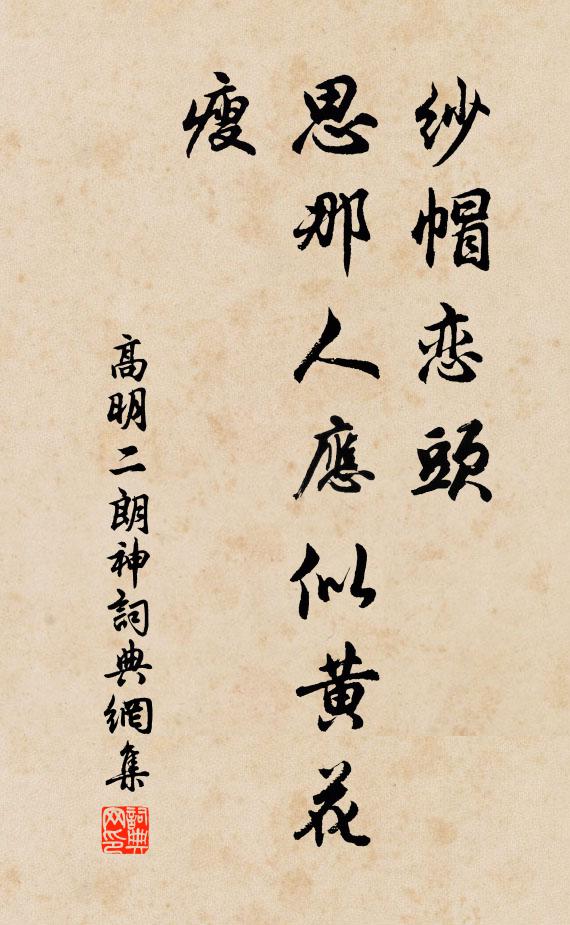 纱帽恋頭
思那人應似黄花
瘦
高明二朗神詞典網集
詞典网印